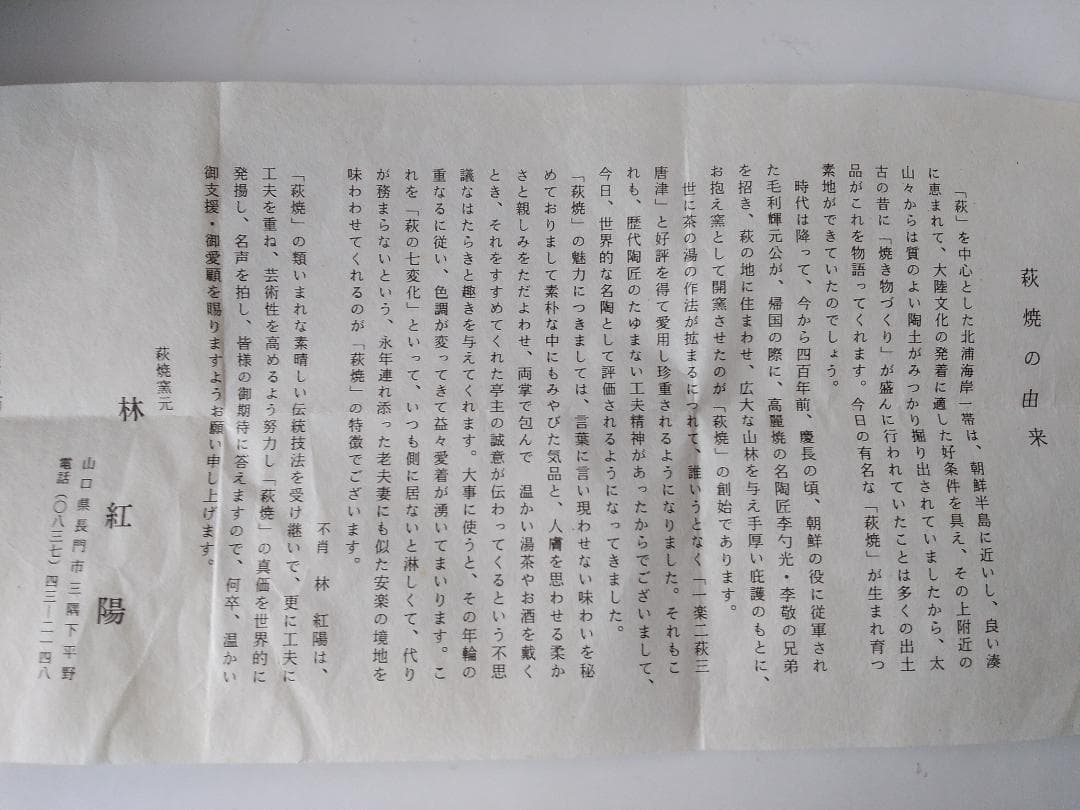 萩焼の由来
「萩」を中心とした北浦海岸一帯は、朝鮮半島に近いし、良い湊
に恵まれて、大陸文化の発着に適した好条件を具え、その上附近の
山々からは質のよい陶土がみつかり掘り出されていましたから、太
古の昔に「焼き物づくり」が盛んに行われていたことは多くの出土
品がこれを物語ってくれます。今日の有名な「萩焼」が生まれ育つ
素地ができていたのでしょう。
時代は降って、今から四百年前、慶長の頃、朝鮮の役に従軍され
た毛利輝元公が、帰国の際に、高麗焼の名陶匠李勺光・李敬の兄弟
を招き、萩の地に住まわせ、広大な山林を与え手厚い庇護のもとに、
お抱え窯として開窯させたのが「萩焼」の創始であります。
世に茶の湯の作法が拡まるにつれて、誰いうとなく「一楽二萩三
唐津」と好評を得て愛用し珍重されるようになりました。それもこ
れも、歴代陶匠のたゆまない工夫精神があったからでございまして、
今日、世界的な名陶として評価されるようになってきました。
「萩焼」の魅力につきましては、言葉に言い現わせない味わいを秘
めておりまして素朴な中にもみやびた気品と、人膚を思わせる柔か
さと親しみをただよわせ、両掌で包んで 温かい湯茶やお酒を戴く
とき、それをすすめてくれた亭主の誠意が伝わってくるという不思
議なはたらきと趣きを与えてくれます。大事に使うと、その年輪の
重なるに従い、色調が変ってきて益々愛着が湧いてまいります。こ
れを「萩の七変化」といって、いつも側に居ないと淋しくて、代り
が務まらないという、永年連れ添った老夫妻にも似た安楽の境地を
味わわせてくれるのが「萩焼」の特徴でございます。
不肖 林 紅陽は、
「萩焼」の類いまれな素晴しい伝統技法を受け継いで、更に工夫に
工夫を重ね、芸術性を高めるよう努力し「萩焼」の真価を世界的に
発揚し、名声を拍し、皆様の御期待に答えますので、何卒、温かい
御支援・御愛顧を賜りますようお願い申し上げます。
萩焼窯元
林 紅陽
山口県長門市三隅下平野
電話(〇八三七)四三―二一四八